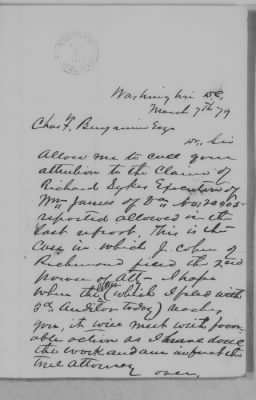 Washington D.C,
March 7th 79
Chas F. Benjamin Esq
Dr, Sir
Allow me to call your
attention to the Claim of
Richard Dykes Executor of
Wm James of Va No,
reported allowed in the
last report, This is the
Case in which J. Cohn of
Richmond filed the 2nd
power of Atty I hope
when the (which I filed with
3d Auditor today) reaches
you, it will meet with favor-
able action as I have done
the work and am in fact the
true Attorney
over,